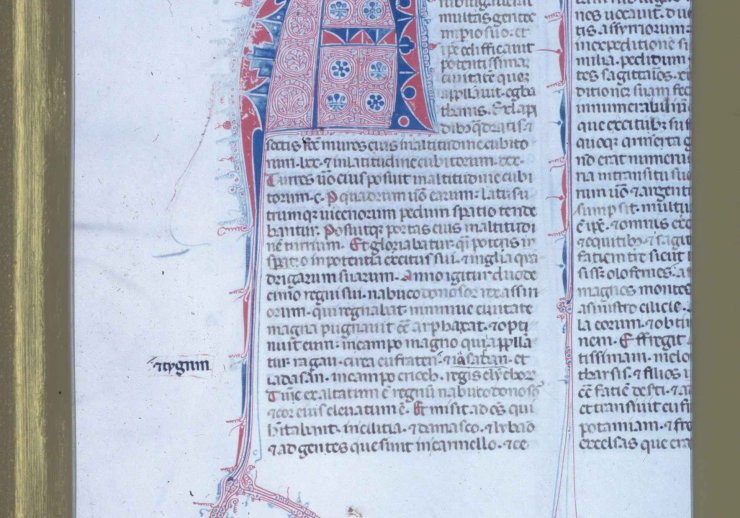 multas gentes
impio suo. et
ipe edificauit
potentissimā
ciuitatē quaʒ
appllauit egba
thanis. Ex lapi
dibꝫ q̄dratis ⁊
sectis fec̄ muros eius in altitudine cubito
rum. lxx. ⁊ in latitudine cubitorum. xxx.
Turres ũo eius posuit in altitudine cubi
torum. c. P quadrum ũo earum. latus u
trumqꝫ uicenorum pedum spatio tende
bantur. Posuitqꝫ portas eius in altitudi
ne turrium. Et gloriabatur q̄ potens in
potentia exercitus sui. ⁊ in glīa qua
drigarum suarum. Anno igitur duode
cimo regni sui. nabucodonosor rex assiri
orum. qui regnabat in niniue ciuitate
magna pugnauit cͨ arphaxat. ⁊ opti
nuit eum. in campo magno qui appllā
tur ragau. circa eufraten ⁊ iasadan. et
iadasan. in campo erioch. regis
Tūc exaltatum ē regnū nabucodonosoꝝ
⁊ cor eius eleuatum ē. Et misit ad oēs qui
hītabant in cilitia. ⁊ damasco. ⁊ lybāo
⁊ ad gentes que sunt in carmello. ⁊ ce
⁊tygrim
nes uocauit. du
tis. assyriorum
in expeditione
milia. peditum
tes sagittarios.
ditionē suam fec
innumerabiliū
que
quoqꝫ armenta
nd erat numerus
na in transitu
rum ũo ⁊ argenti
sumpsit. multū
⁊ ipe. ⁊ omnis exe
⁊ equitibꝫ ⁊ sagit
faciem tre sicut
olofernes. a
magnos montes
a sinistro cilicie.
la eorum. ⁊ obti
nem. Effregit
tissimam. melo
tharsis. ⁊ filios i
cͨ faciē ⁊ a
et transiuit euf
potamiam. ⁊ fr
excelsas que era